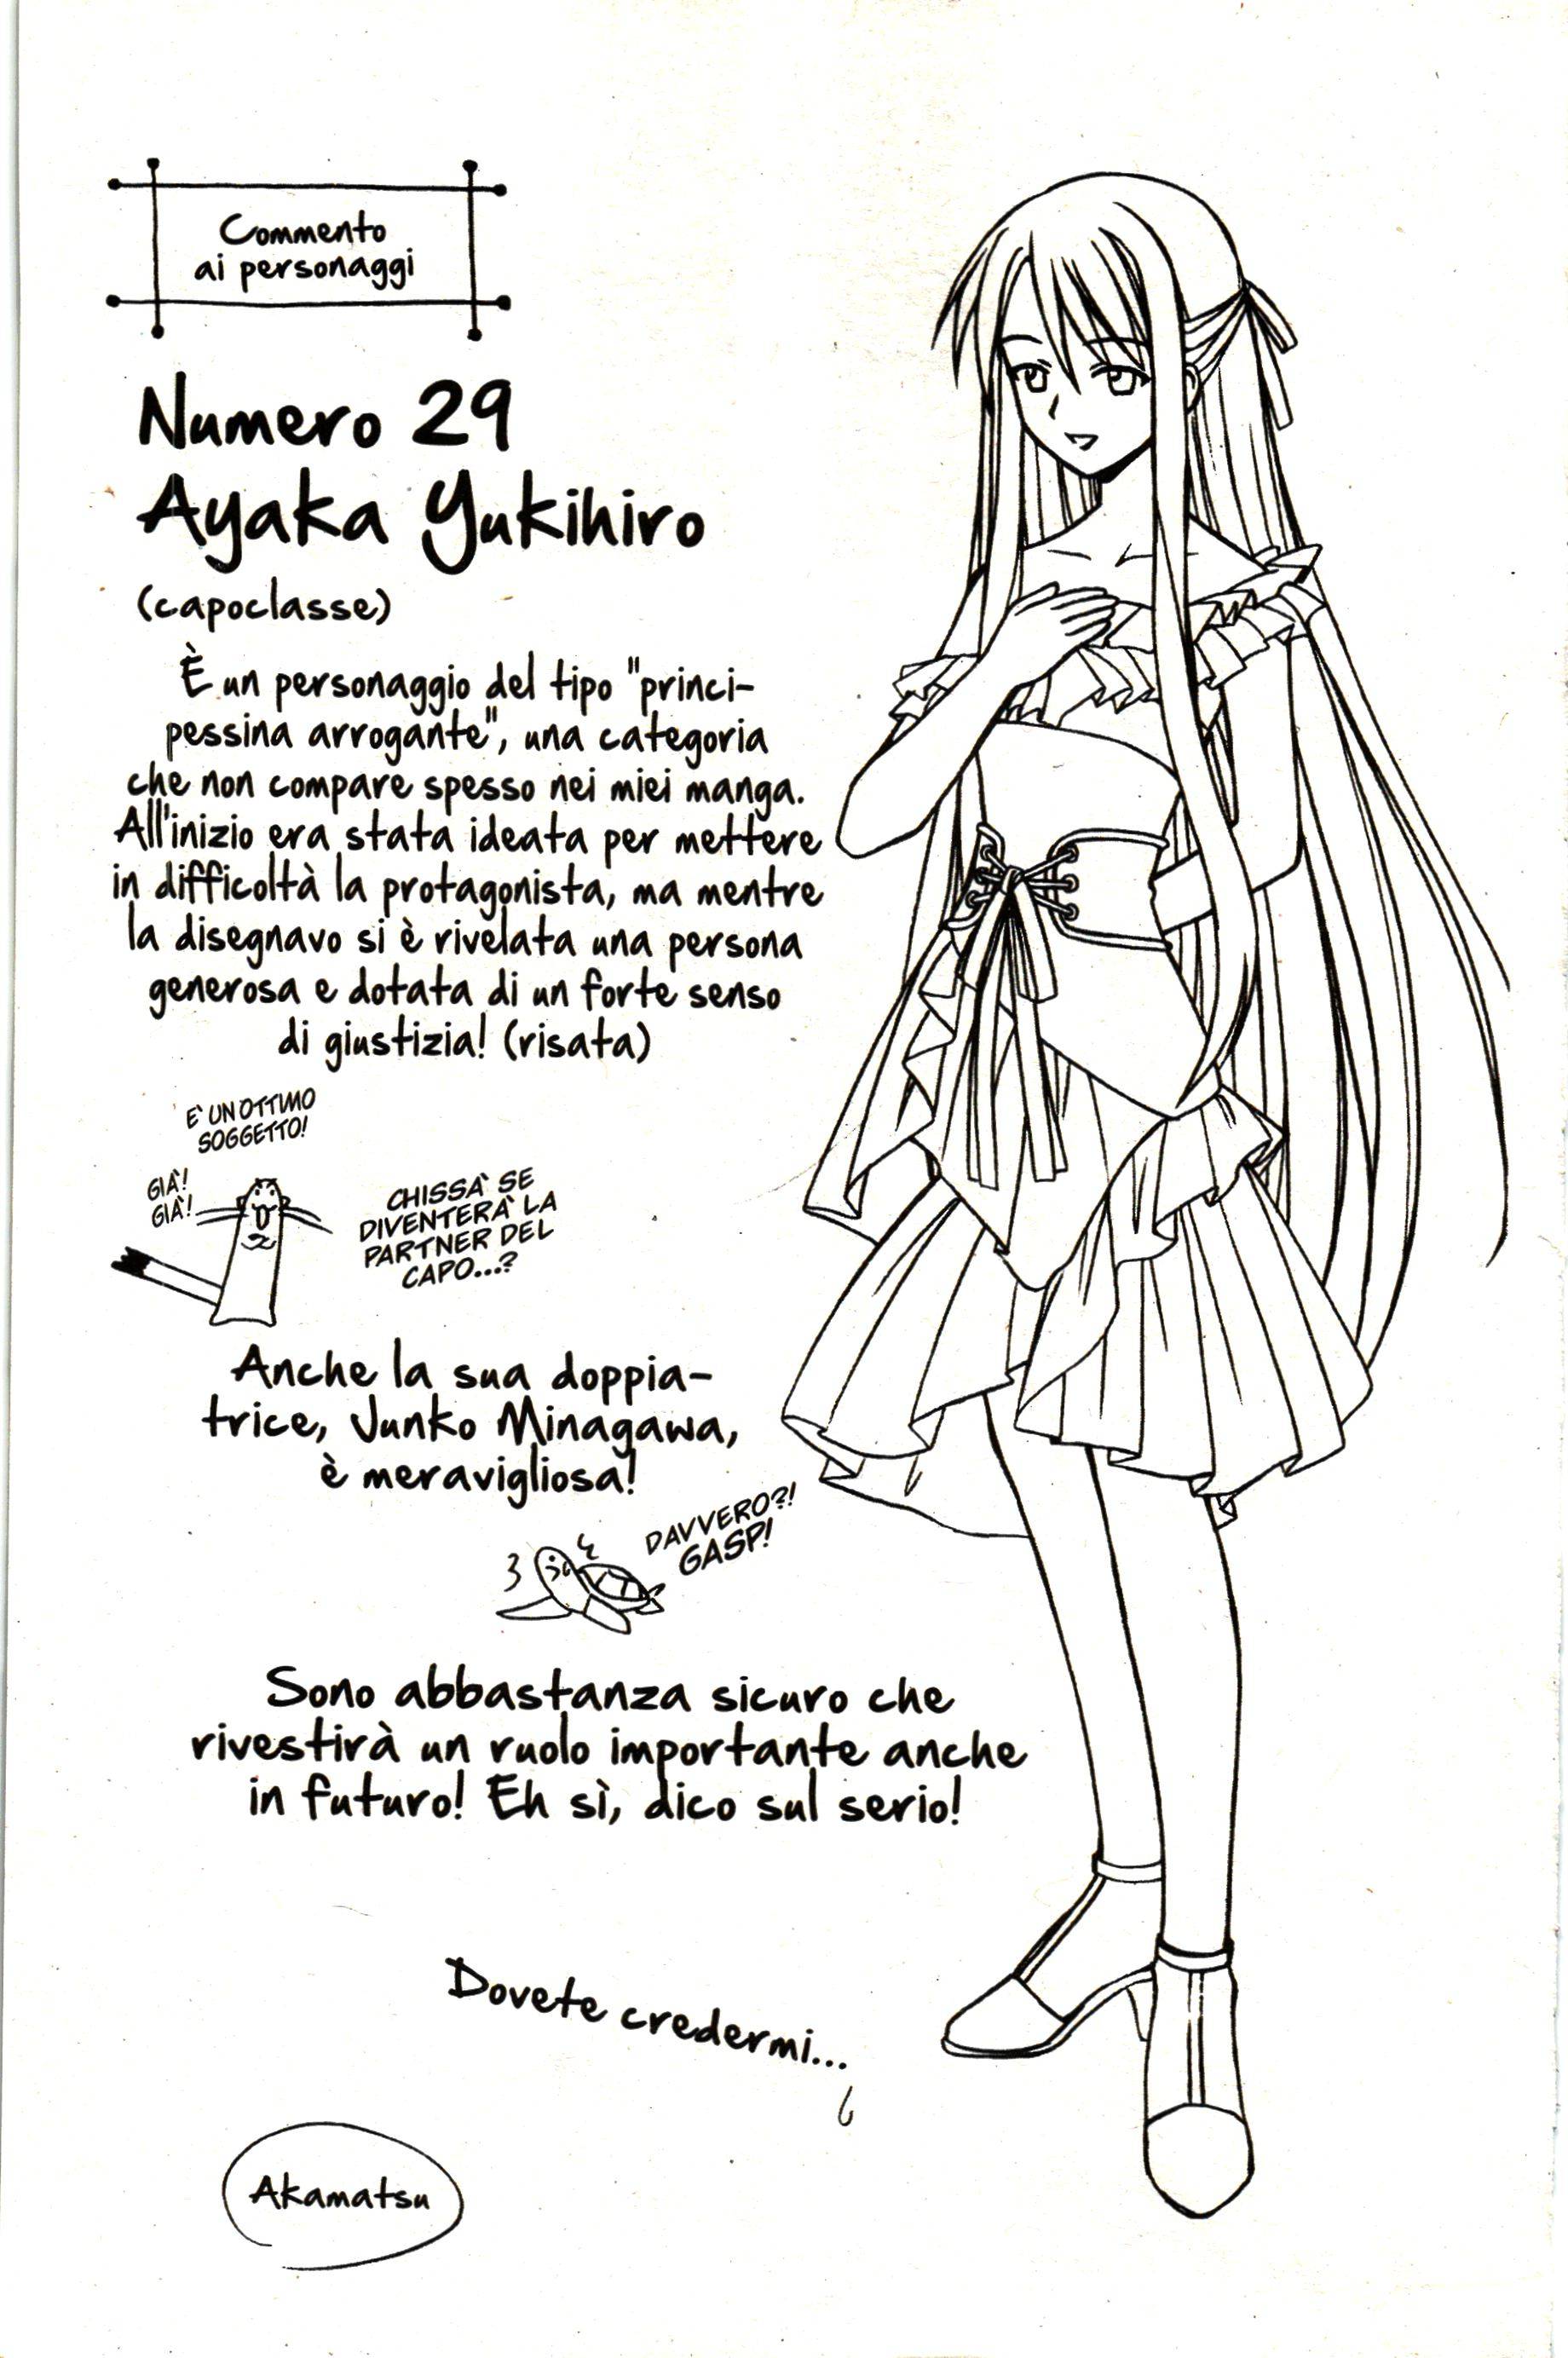 Commento
ai personaggi
Numero 29
Ayaka Yukihiro
(capoclasse)
È un personaggio del tipo "princi-
pessina arrogante", una categoria
che non compare spesso nei miei manga.
All'inizio era stata ideata per mettere
in difficoltà la protagonista, ma mentre
la disegnavo si è rivelata una persona
generosa e dotata di un forte senso
di giustizia! (risata)
E' UN OTTIMO
SOGGETTO!
GIÀ!
GIÀ!
CHISSA' SE
DIVENTERA' LA
PARTNER DEL
CAPO...?
Anche la sua doppia-
trice, Junko Minagawa,
è meravigliosa!
DAVVERO?!
GASP!
Sono abbastanza sicuro che
rivestirà un ruolo importante anche
in futuro! Eh sì, dico sul serio!
Dovete credermi...
Akamatsu